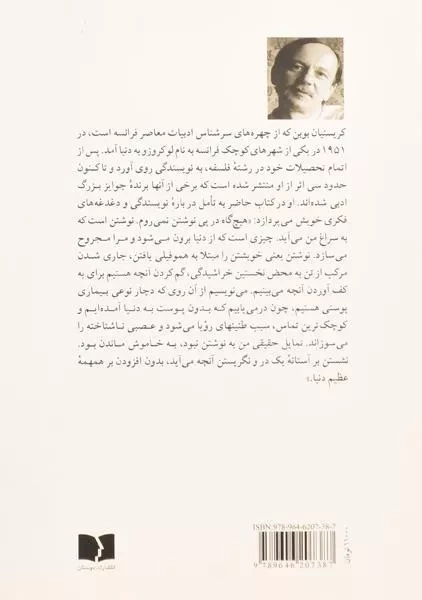 کریستیان بوبن که از چهره‌های سرشناس ادبیات معاصر فرانسه است، در
۱۹۵۱ در یکی از شهرهای کوچک فرانسه به نام لوکروزو به دنیا آمد. پس از
اتمام تحصیلات خود در رشتهٔ فلسفه، به نویسندگی روی آورد و تاکنون
حدود سی اثر از او منتشر شده است که برخی از آنها برندهٔ جوایز بزرگ
ادبی شده‌اند. او در کتاب حاضر به تأمل در بارهٔ نویسندگی و دغدغه‌های
فکری خویش می‌پردازد: «هیچ‌گاه در پی نوشتن نمی‌روم. نوشتن است که
به سراغ من می‌آید. چیزی است که از دنیا برون می‌شود و مرا مجروح
می‌سازد. نوشتن یعنی خویشتن را مبتلا به هموفیلی یافتن، جاری شدن
مرکب از تن به محض نخستین خراشیدگی، گم کردن آنچه هستیم برای به
کف آوردن آنچه می‌بینیم. می‌نویسیم از آن روی که دچار نوعی بیماری
پوستی هستیم، چون درمی‌یابیم که بدون پوست به دنیا آمده‌ایم و
کوچک‌ترین تماس، سبب طنینهای رؤیا می‌شود و عصبی ناشناخته را
می‌سوزاند. تمایل حقیقی من به نوشتن نبود، به خاموش ماندن بود.
نشستن بر آستانهٔ یک در و نگریستن آنچه می‌آید، بدون افزودن بر همهمهٔ
عظیم دنیا.»
ISBN: 978-964-6207-38-7
9 789646 207387
تومان
انتشارات دوستان